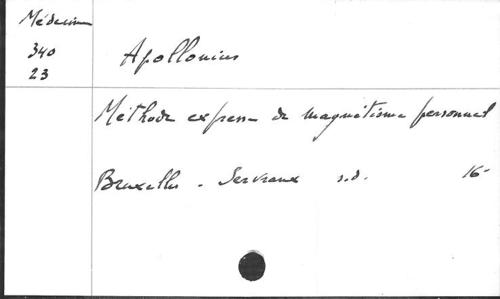 Médecine
340
23
Apollonius
Méthode express de magnétisme personnel
Bruxelles - Servranx s.d. 16-